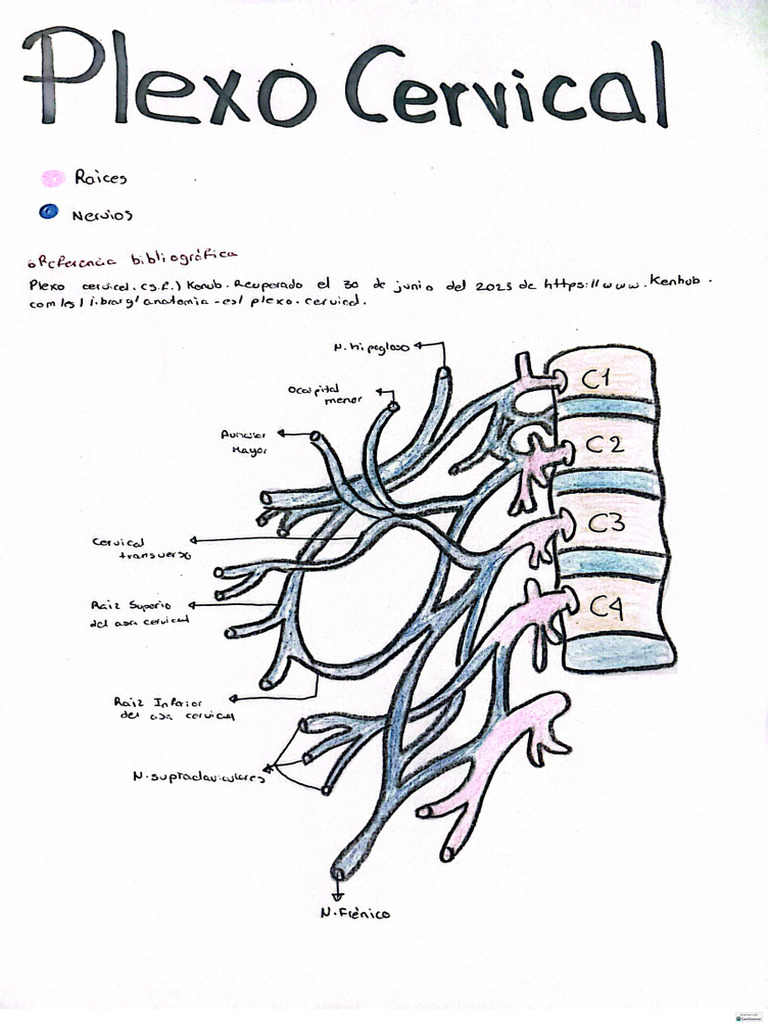 Plexo Cervical
Raices
Nervios
Referencia bibliográfica
Plexo cervical. (s.f.) Kenub. Recuperado el 30 de junio del 2023 de https://www.Kenhub.
com/es/library/anatomia-es/plexo-cervical.
N. hipogloso
C1
Occipital
menor
Auricular
Mayor
C2
C3
Cervical
transverso
Raiz Superio
del asa cervical
C4
Raiz Inferior
del asa cervical
N. supraclaviculares
N. Frénico
CamScanner